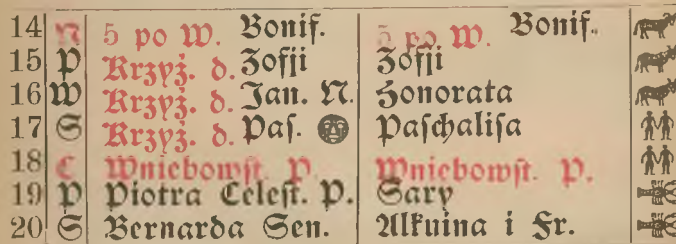 14 N 5 po W. Bonif. 5 po W. Bonif.
15 P Krzyż. d. Zofji Zofji
16 W Krzyż. d. Jan. N. Honorata
17 S Krzyż. d. Paſ. Paſchaliſa
18 C Wniebowſt. P. Wniebowſt. P.
19 P Piotra Celeſt. P. Sary
20 S Bernarda Sen. Alkuina i Fr.